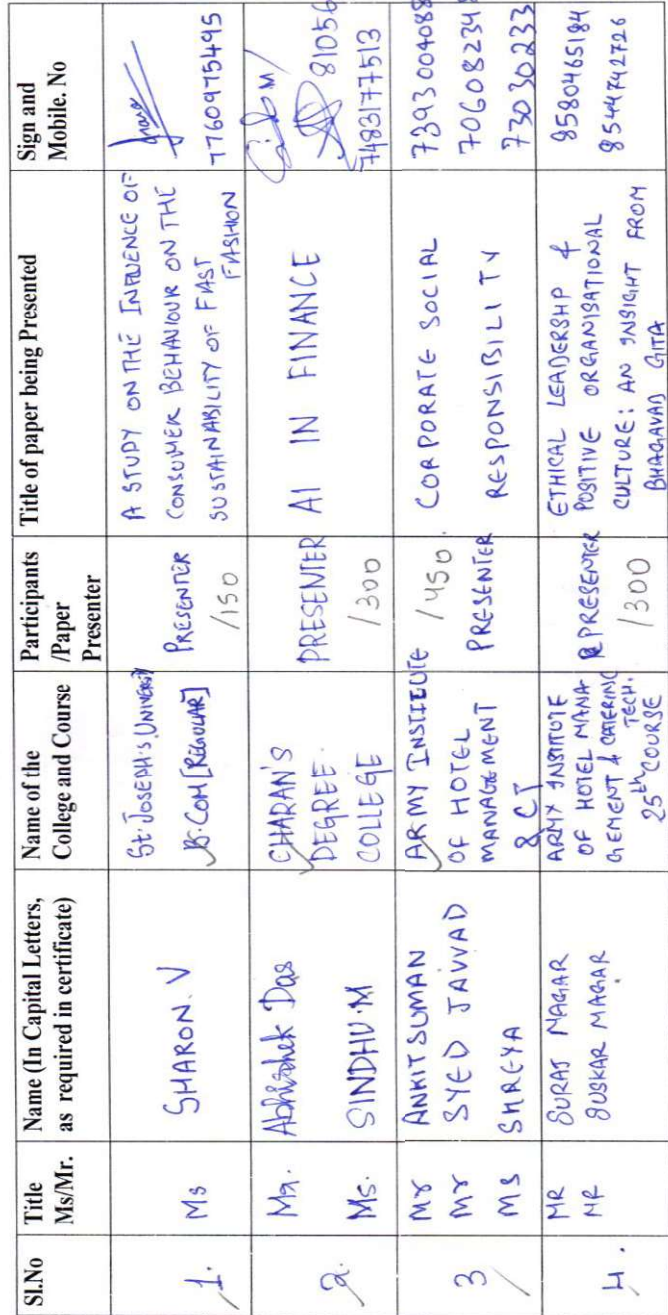 Sl.No Title Ms/Mr. Name (In Capital Letters, as required in certificate) Name of the College and Course Participants /Paper Presenter Title of paper being Presented Sign and Mobile. No
1. Ms SHARON. V
St. JOSEPH'S UNIVERSITY
B.COM [REGULAR]
PRESENTER
/150
A STUDY ON THE INFLUENCE OF
CONSUMER BEHAVIOUR ON THE
SUSTAINABILITY OF FAST
FASHION
7760975495
2. Mr. Abhishek Das
Ms. SINDHU.M
CHARAN'S
DEGREE
COLLEGE
PRESENTER
/300
AI IN FINANCE
81056
7483177513
3
Mr ANKIT SUMAN
Mr SYED JAVVAD
Ms SHREYA
ARMY INSTITUTE
OF HOTEL
MANAGEMENT
& CT
/450
PRESENTER
CORPORATE SOCIAL
RESPONSIBILITY
7393004088
706082348
73030233
4.
MR SURAJ MAGAR
MR SUSKAR MAGAR
ARMY INSTITUTE
OF HOTEL MANA
GEMENT & CATERING
TECH.
25th COURSE
PRESENTER
/300
ETHICAL LEADERSHP &
POSITIVE ORGANISATIONAL
CULTURE: AN INSIGHT FROM
BHAGAVAD GITA
8580465184
8544742726